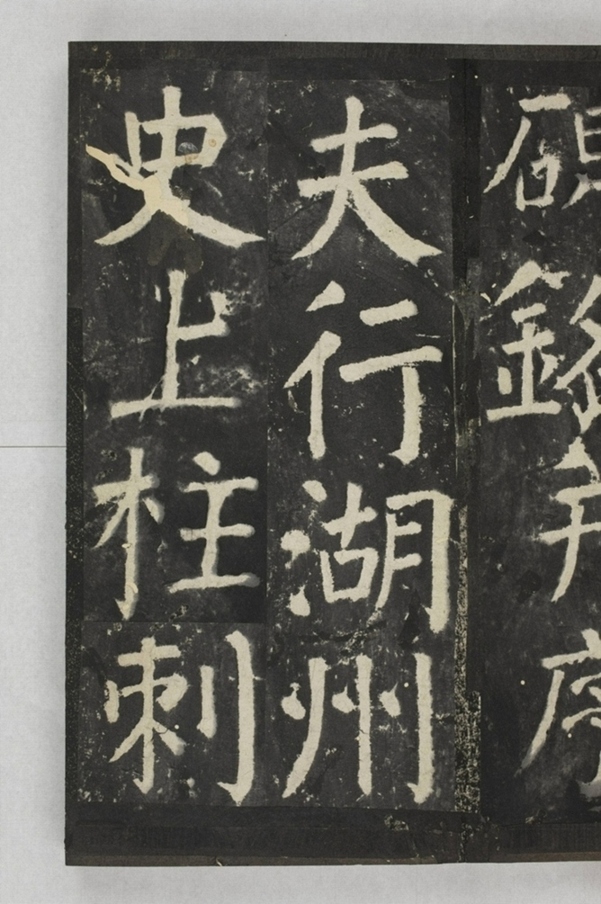 碑銘并序
夫行湖州
史上柱刺